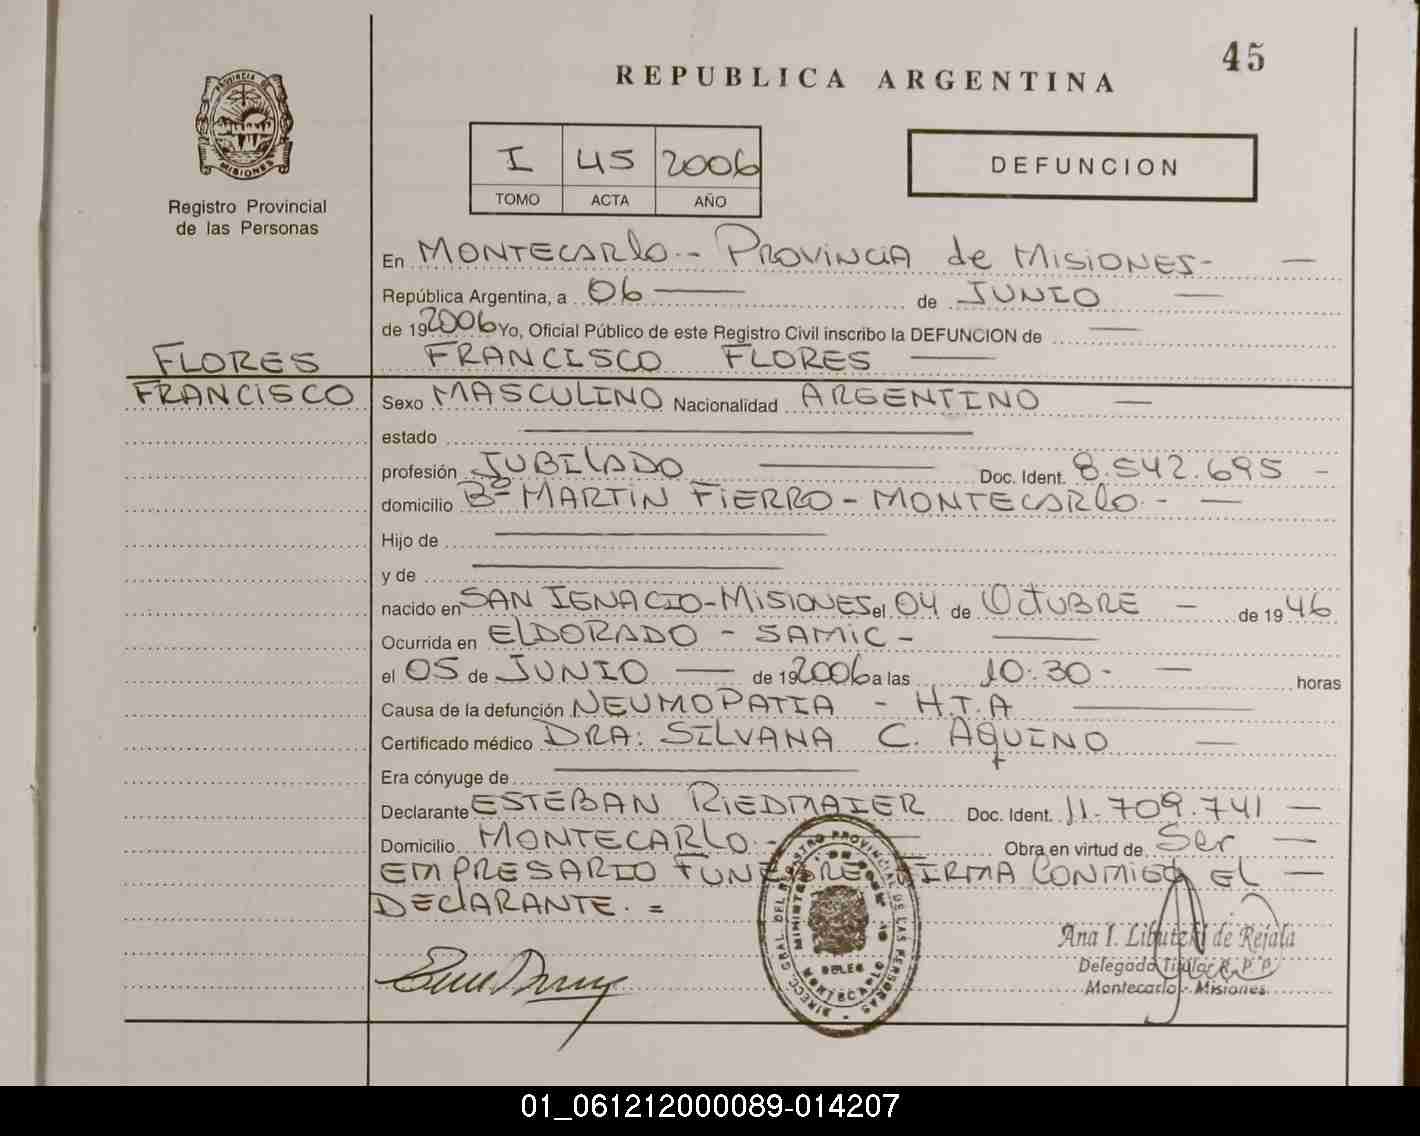 45
REPUBLICA ARGENTINA
PROVINCIA DE
MISIONES
Registro Provincial
de las Personas
I 45 2006
TOMO ACTA AÑO
DEFUNCION
En MONTECARLO.- PROVINCIA de MISIONES-
República Argentina, a 06 de JUNIO
de 192006 Yo, Oficial Público de este Registro Civil inscribo la DEFUNCION de
FLORES FRANCISCO FLORES
FRANCISCO
Sexo MASCULINO Nacionalidad ARGENTINO
estado
profesión JUBILADO Doc. Ident. 8.542.695 -
domicilio Bº MARTIN FIERRO - MONTECARLO.-
Hijo de
y de
nacido en SAN IGNACIO-MISIONES el 04 de OCTUBRE - de 19 46
Ocurrida en ELDORADO - SAMIC -
el 05 de JUNIO de 192006 a las 10.30.- horas
Causa de la defunción NEUMOPATIA - H.T.A
Certificado médico DRA: SILVANA C. AQUINO
Era cónyuge de
Declarante ESTEBAN RIEDMAIER Doc. Ident. 11.709.741 -
Domicilio MONTECARLO.- Obra en virtud de Ser
EMPRESARIO FUNEBRE FIRMA CONMIGO EL
DECLARANTE. =
DIRECC. GRAL. DEL REGISTRO PROVINCIAL DE LAS PERSONAS
MONTECARLO
Ana I. Libutzki de Rejala
Delegada Titular R. P. P.
Montecarlo - Misiones
01_061212000089-014207